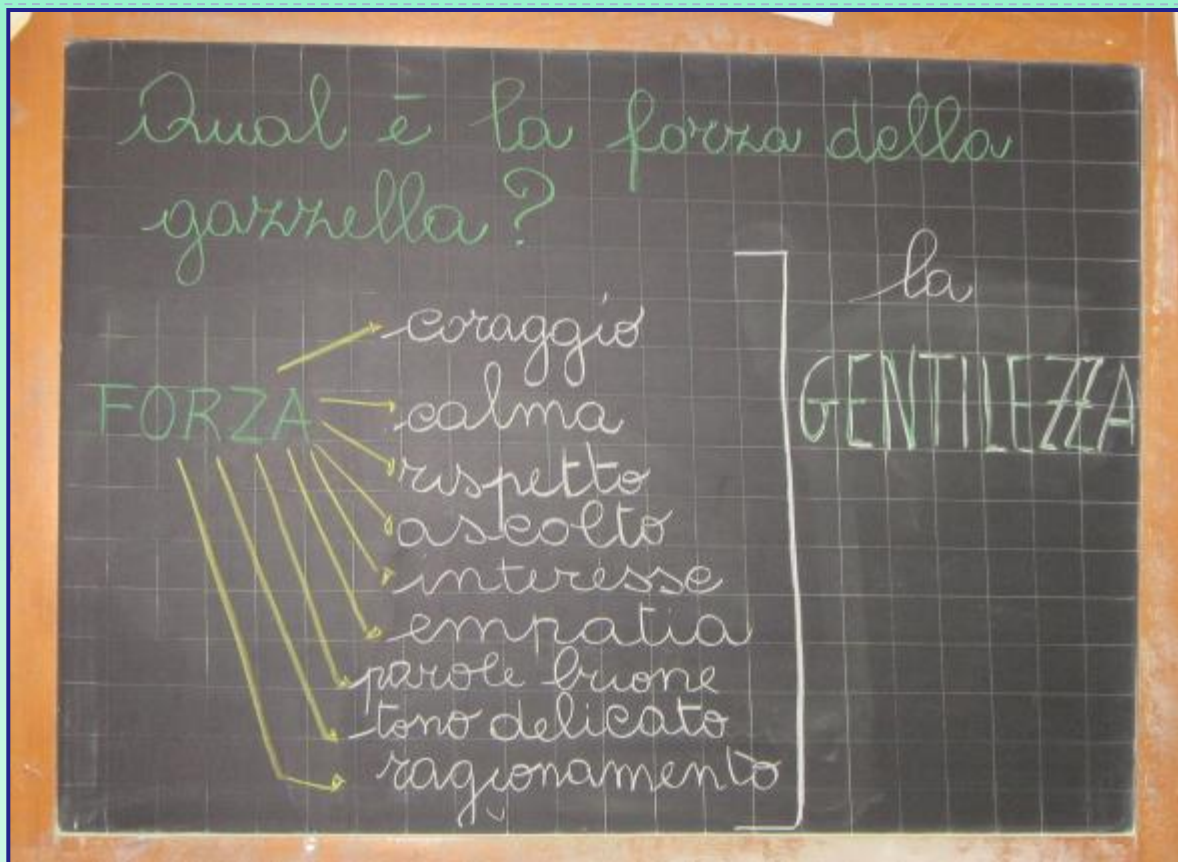 Qual è la forza della
gazzella?
FORZA
coraggio
calma
rispetto
ascolto
interesse
empatia
parole buone
tono delicato
ragionamento
la
GENTILEZZA